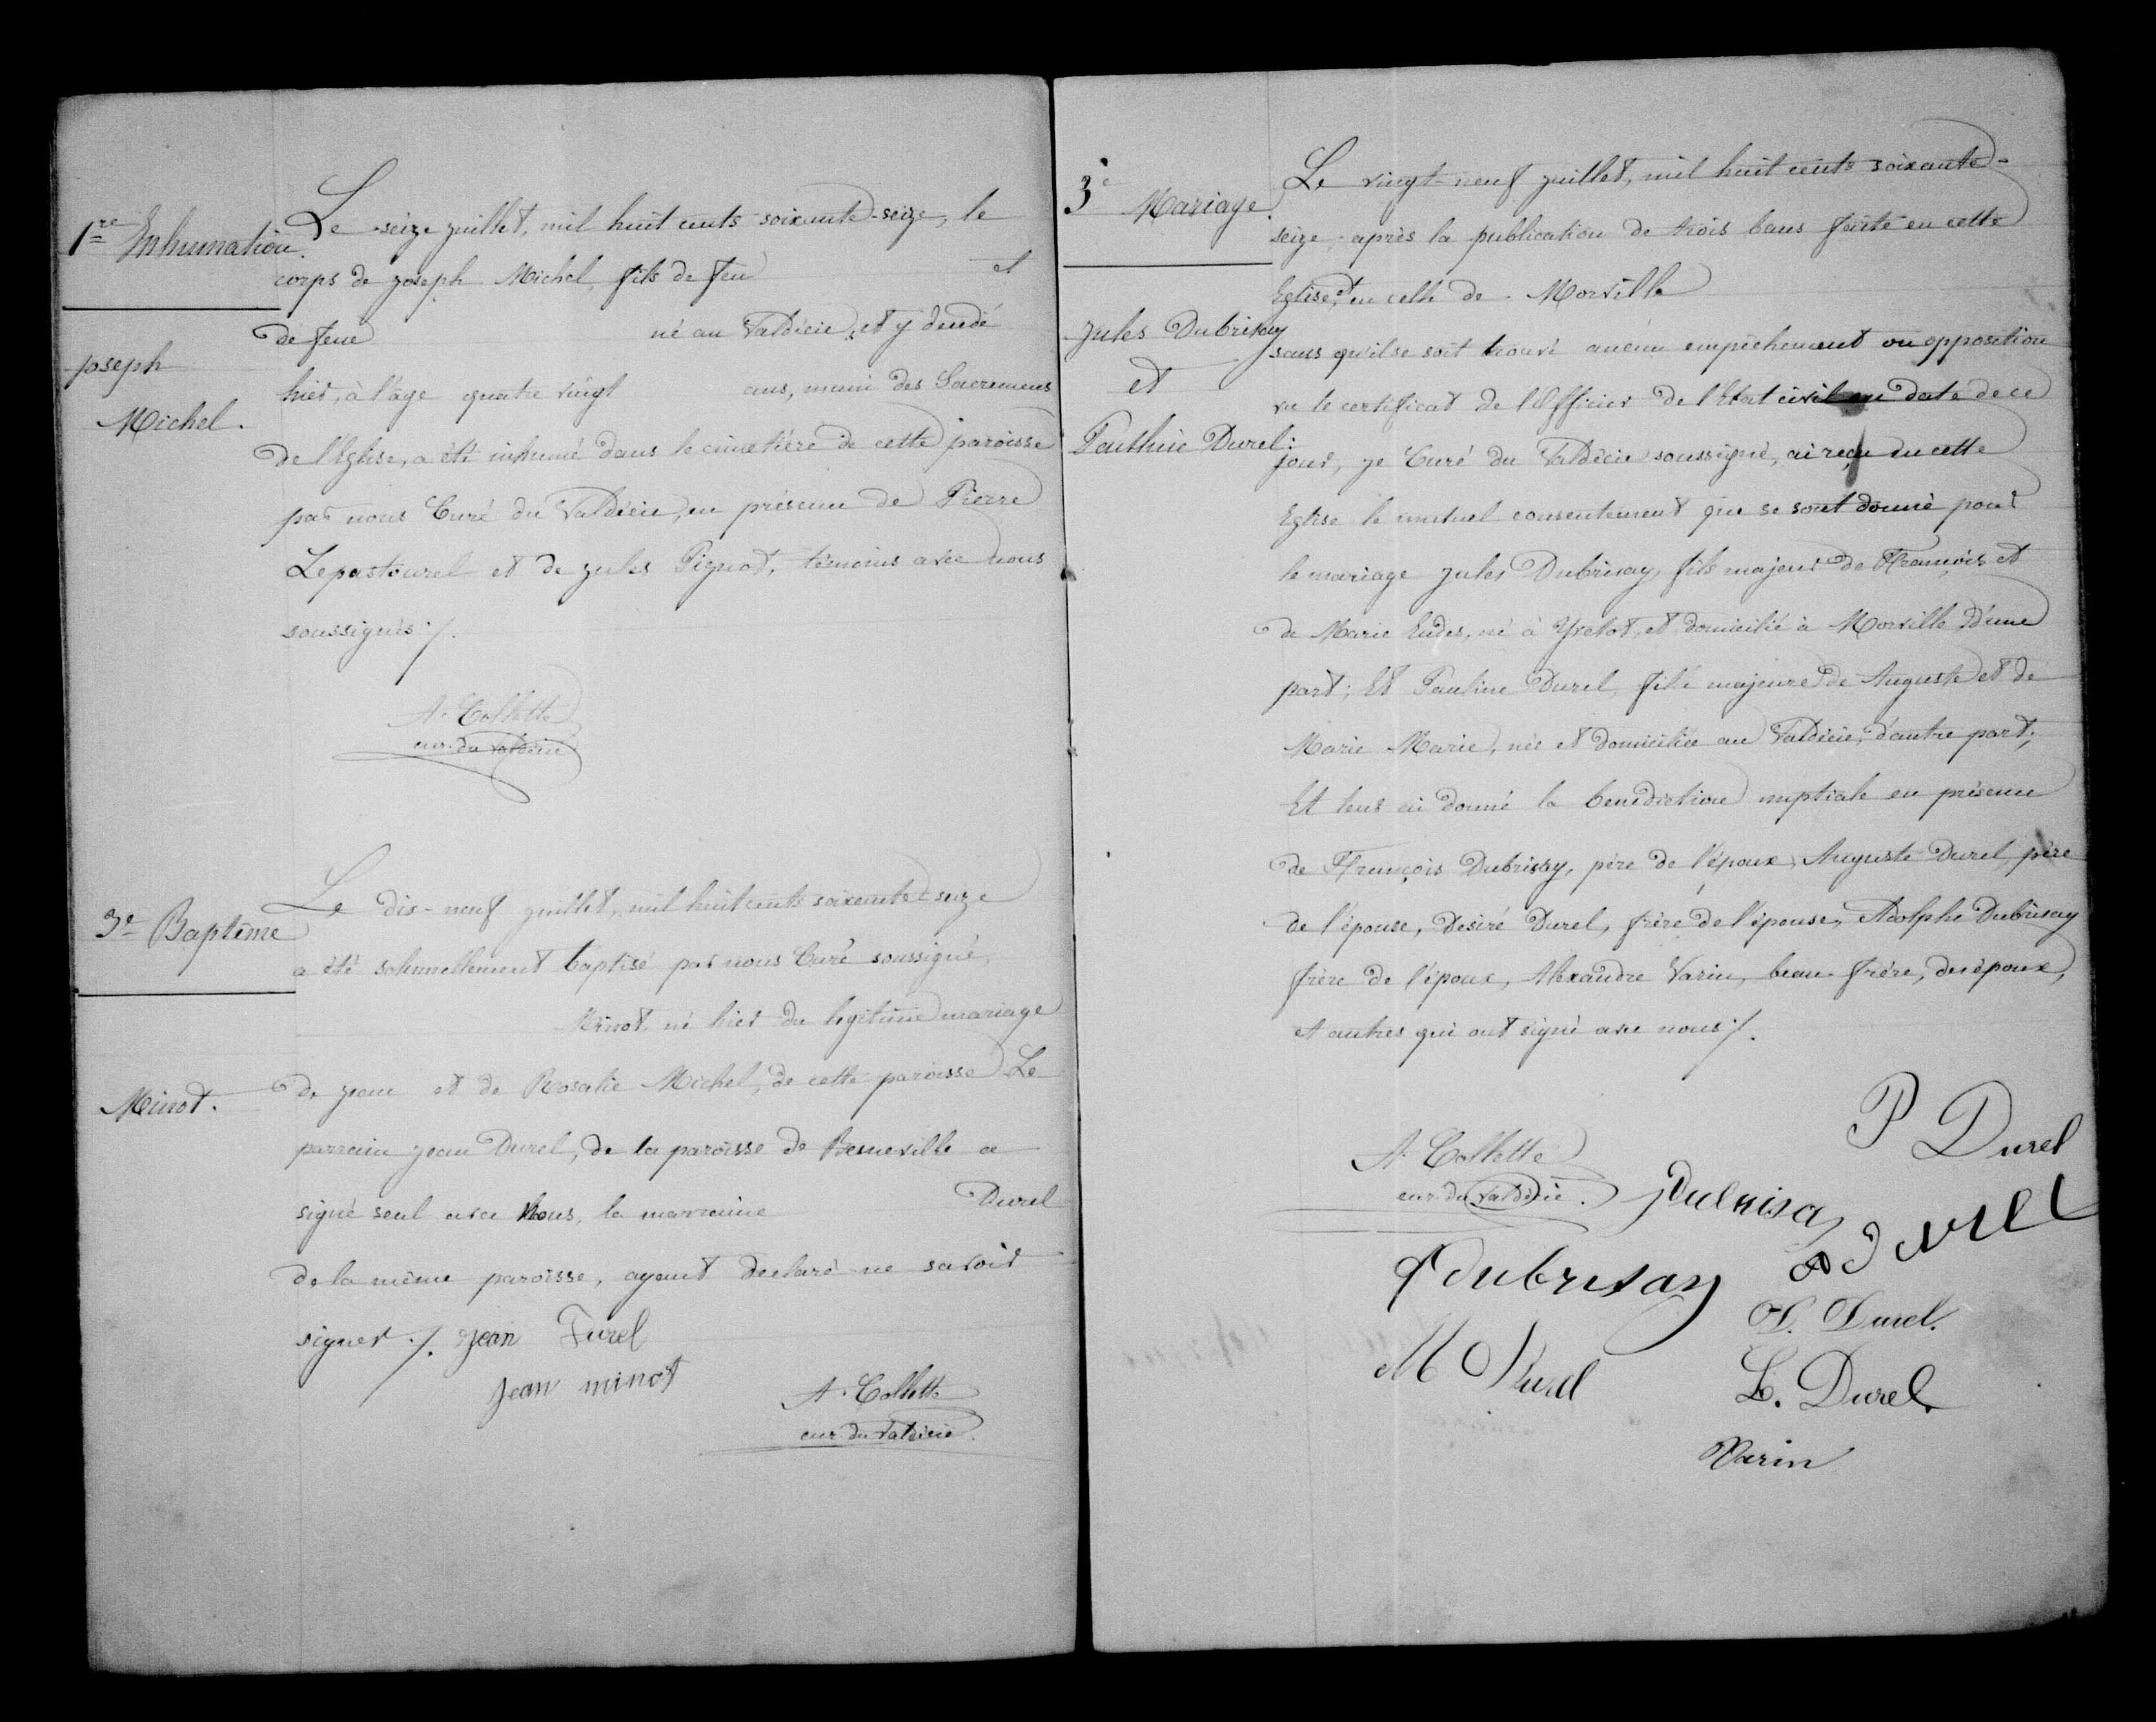 1re Inhumation.
Joseph
Michel.
Le seize juillet, mil huit cents soixante-seize, le
corps de Joseph Michel, fils de feu et
de feue né au Valdécie, et y décédé
hier, à l'âge quatre vingt ans, muni des Sacremens
de l'Eglise, a été inhumé dans le cimetière de cette paroisse
par nous Curé du Valdécie, en présence de Pierre
Lepastourel et de Jules Pignot, témoins avec nous
soussignés ./.
A. Collette
cur. du Valdécie
3e Baptême
Minot.
Le dix-neuf juillet, mil huit cents soixante-seize
a été solennellement baptisé par nous Curé soussigné,
Minot, né hier du légitime mariage
de Jean et de Rosalie Michel, de cette paroisse Le
parrain Jean Durel, de la paroisse de Besneville a
signé seul avec Nous, la marraine Durel
de la même paroisse, ayant déclaré ne savoir
signer ./. Jean Furel
Jean minot
A. Collette
cur. du Valdécie.
3e Mariage.
Jules Dubrisay
et
Pauline Durel.
Le vingt-neuf juillet, mil huit cents soixante-
seize, après la publication de trois bans faite en cette
Eglise, et en celle de Morville
sans qu'il se soit trouvé aucun empêchement ou opposition
vu le certificat de l'Officier de l'Etat civil en date de ce
jour, je Curé du Valdécie soussigné, ai reçu du cette
Eglise le mutuel consentement que se sont donné pour
le mariage Jules Dubrisay, fils majeur de François et
de Marie Eudes, né à Yvetot, et domicilié à Morville, d'une
part; Et Pauline Durel, fille majeure de Auguste et de
Marie Marie, née et domiciliée au Valdécie, d'autre part;
Et leur ai donné la bénédiction nuptiale en présence
de François Dubrisay, père de l'époux, Auguste Durel, père
de l'épouse, Desiré Durel, frère de l'épouse, Adolphe Dubrisay
frère de l'époux, Alexandre Varin, beau-frère, des époux,
et autres qui ont signé avec nous ./.
P Durel
A. Collette
cur. du Valdécie.
Dubrisay
Durel
Dubrisay
D. Durel.
M Durel
L. Durel.
Varin